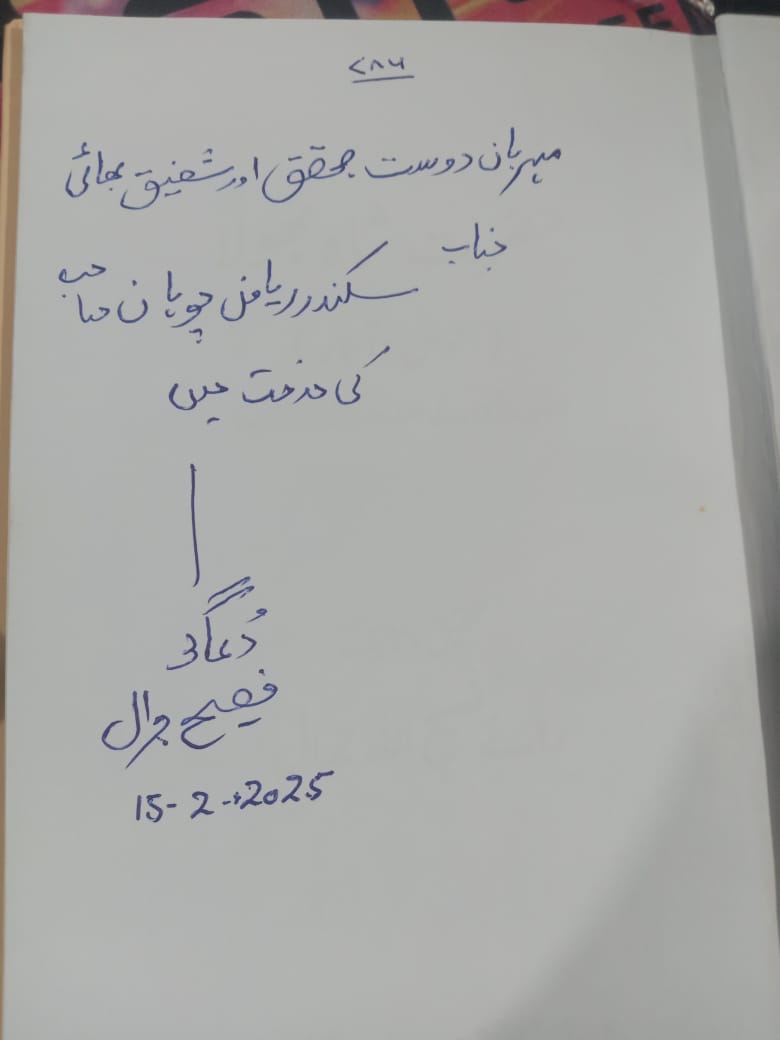 ۷۸۶
مہربان دوست محقق اور شفیق بھائی
جناب
سکندر ریاض چوہان صاحب
کی خدمت میں
دُعاگو
فصیح جرال
15-2-2025